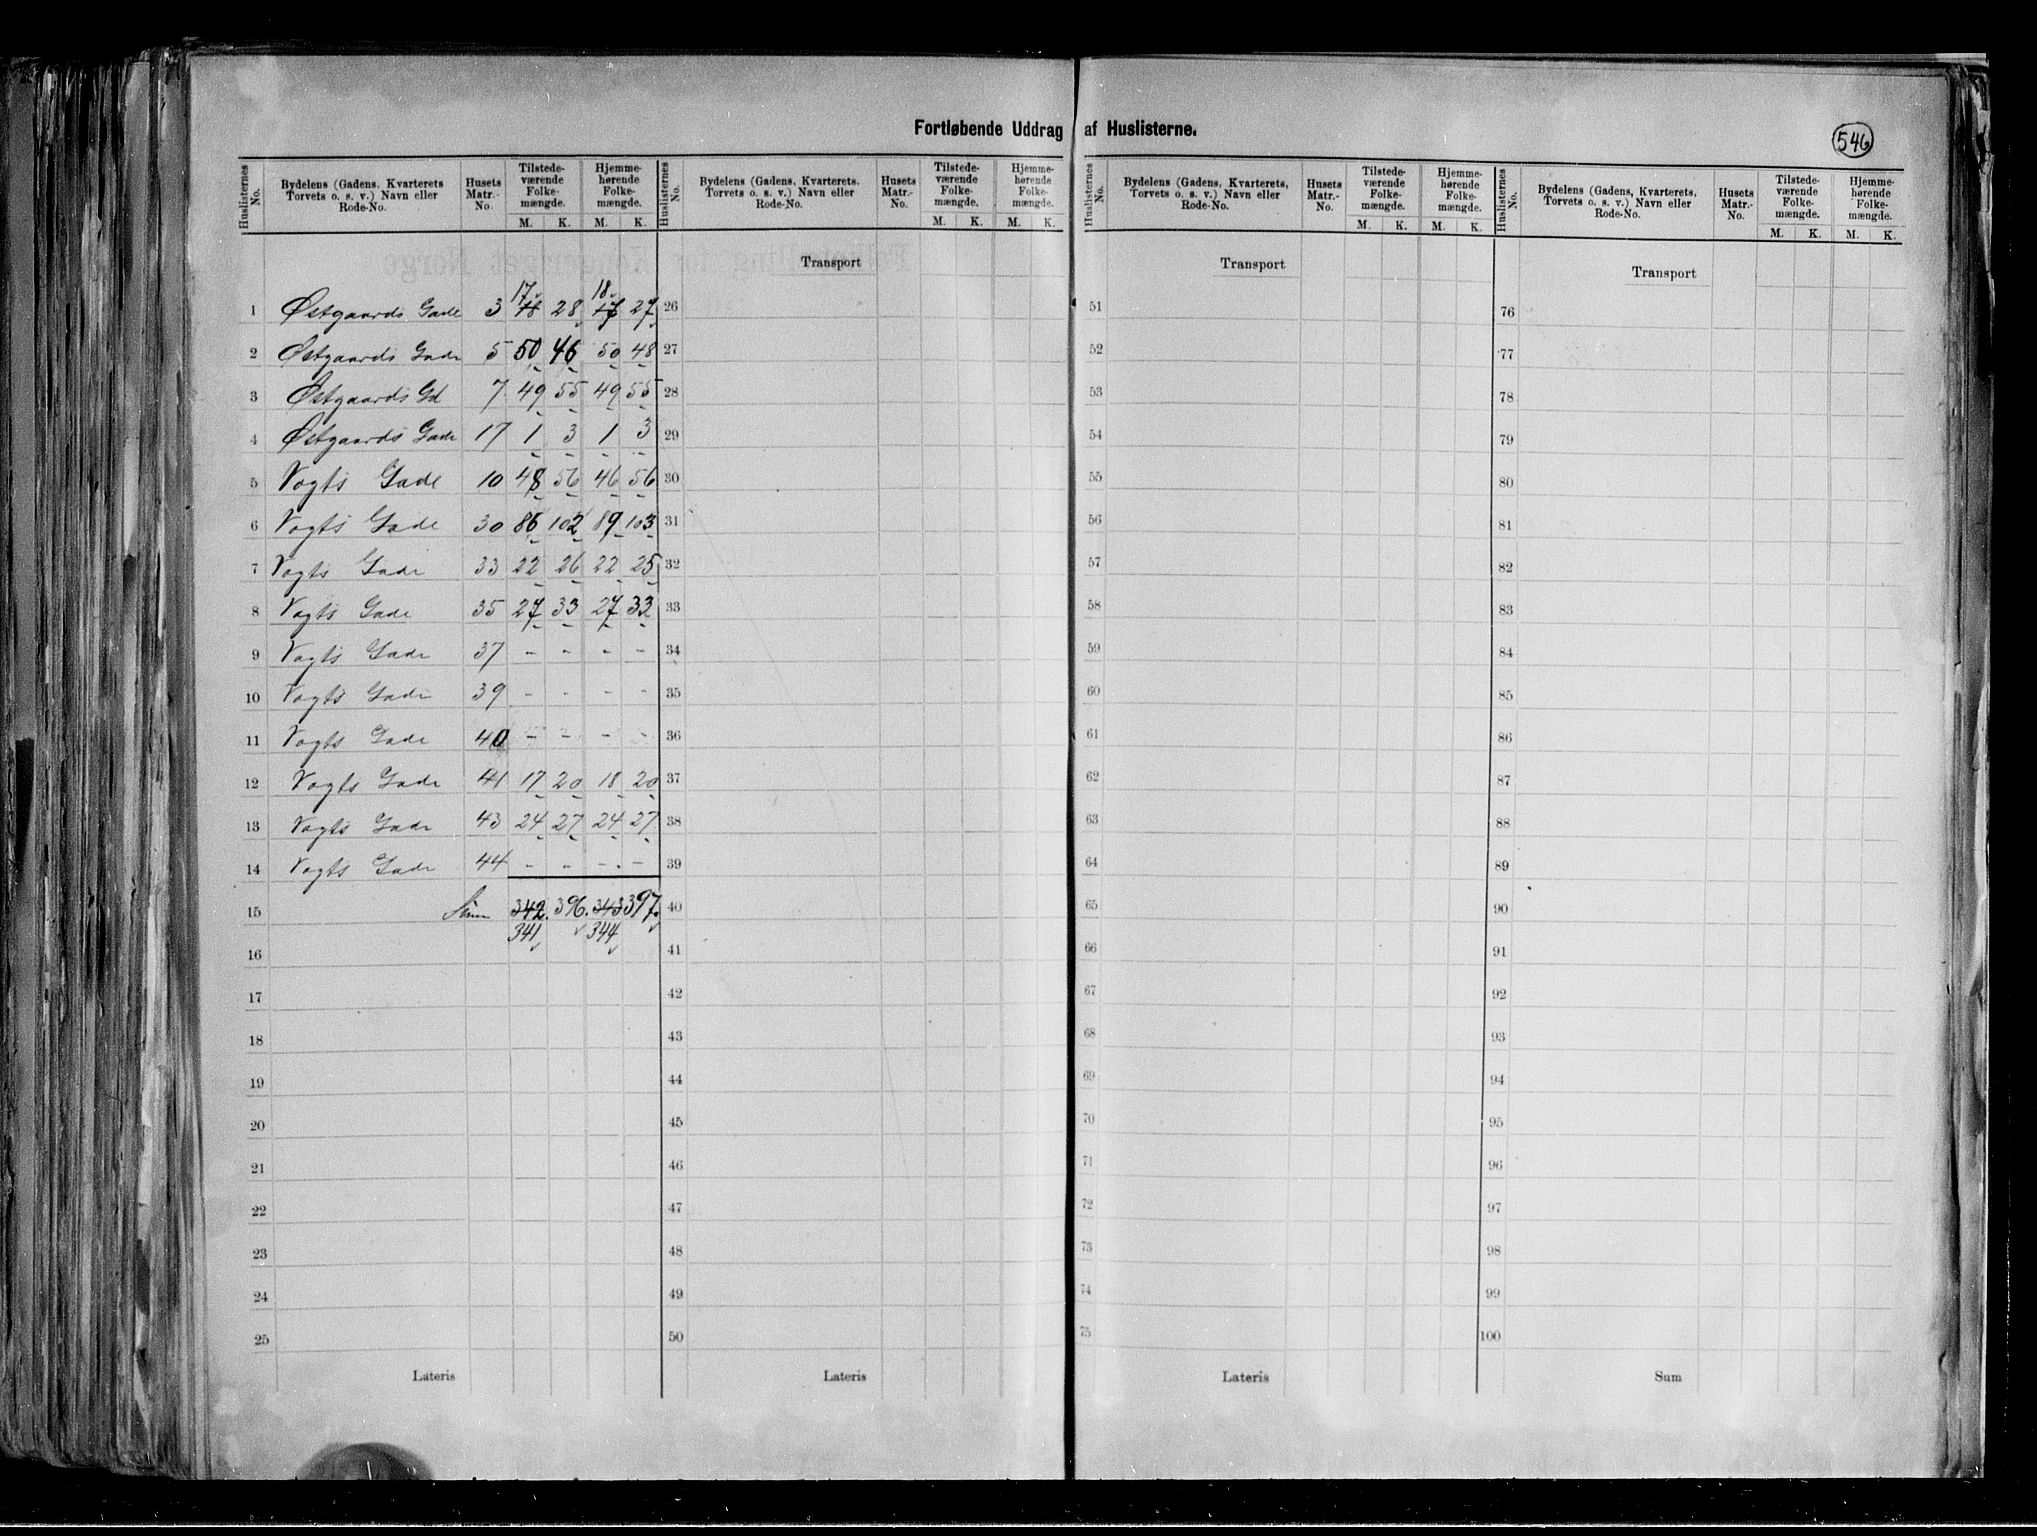 Fortløbende Uddrag af Huslisterne.
546
Huslisternes No. | Bydelens (Gadens, Kvarterets Torvets o. s. v.) Navn eller Rode-No. | Husets Matr.-No. | Tilstedeværende Folkemængde. M. K. | Hjemmehørende Folkemængde. M. K.
Huslisternes No. | Bydelens (Gadens, Kvarterets. Torvets o. s. v.) Navn eller Rode-No. | Husets Matr.-No. | Tilstedeværende Folkemængde. M. K. | Hjemmehørende Folkemængde. M. K.
Huslisternes No. | Bydelens (Gadens, Kvarterets, Torvets o. s. v.) Navn eller Rode-No. | Husets Matr.-No. | Tilstedeværende Folkemængde. M. K. | Hjemmehørende Folkemængde. M. K.
Huslisternes No. | Bydelens (Gadens, Kvarterets, Torvets o. s. v.) Navn eller Rode-No. | Husets Matr.-No. | Tilstedeværende Folkemængde. M. K. | Hjemmehørende Folkemængde. M. K.
Transport Transport Transport
17 18
1 Østgaards Gade 3 18 28 17 27
2 Østgaards Gade 5 50 46 50 48
3 Østgaards Gd 7 49 55 49 55
4 Østgaards Gade 17 1 3 1 3
5 Vogts Gade 10 48 56 46 56
6 Vogts Gade 30 86 102 89 103
7 Vogts Gade 33 22 26 22 25
8 Vogts Gade 35 27 33 27 33
9 Vogts Gade 37 - - - -
10 Vogts Gade 39 - - - -
11 Vogts Gade 40 - - - -
12 Vogts Gade 41 17 20 18 20
13 Vogts Gade 43 24 27 24 27
14 Vogts Gade 44 - - - -
15 Sum 342. 396. 343 397
341 344
16
17
18
19
20
21
22
23
24
25
Lateris
26
27
28
29
30
31
32
33
34
35
36
37
38
39
40
41
42
43
44
45
46
47
48
49
50
Lateris
51
52
53
54
55
56
57
58
59
60
61
62
63
64
65
66
67
68
69
70
71
72
73
74
75
Lateris
76
77
78
79
80
81
82
83
84
85
86
87
88
89
90
91
92
93
94
95
96
97
98
99
100
Sum